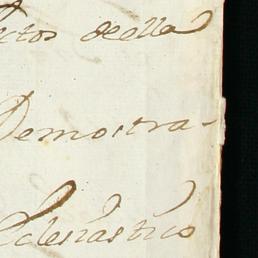 ctos deella
Demostra-
Eclesiastico